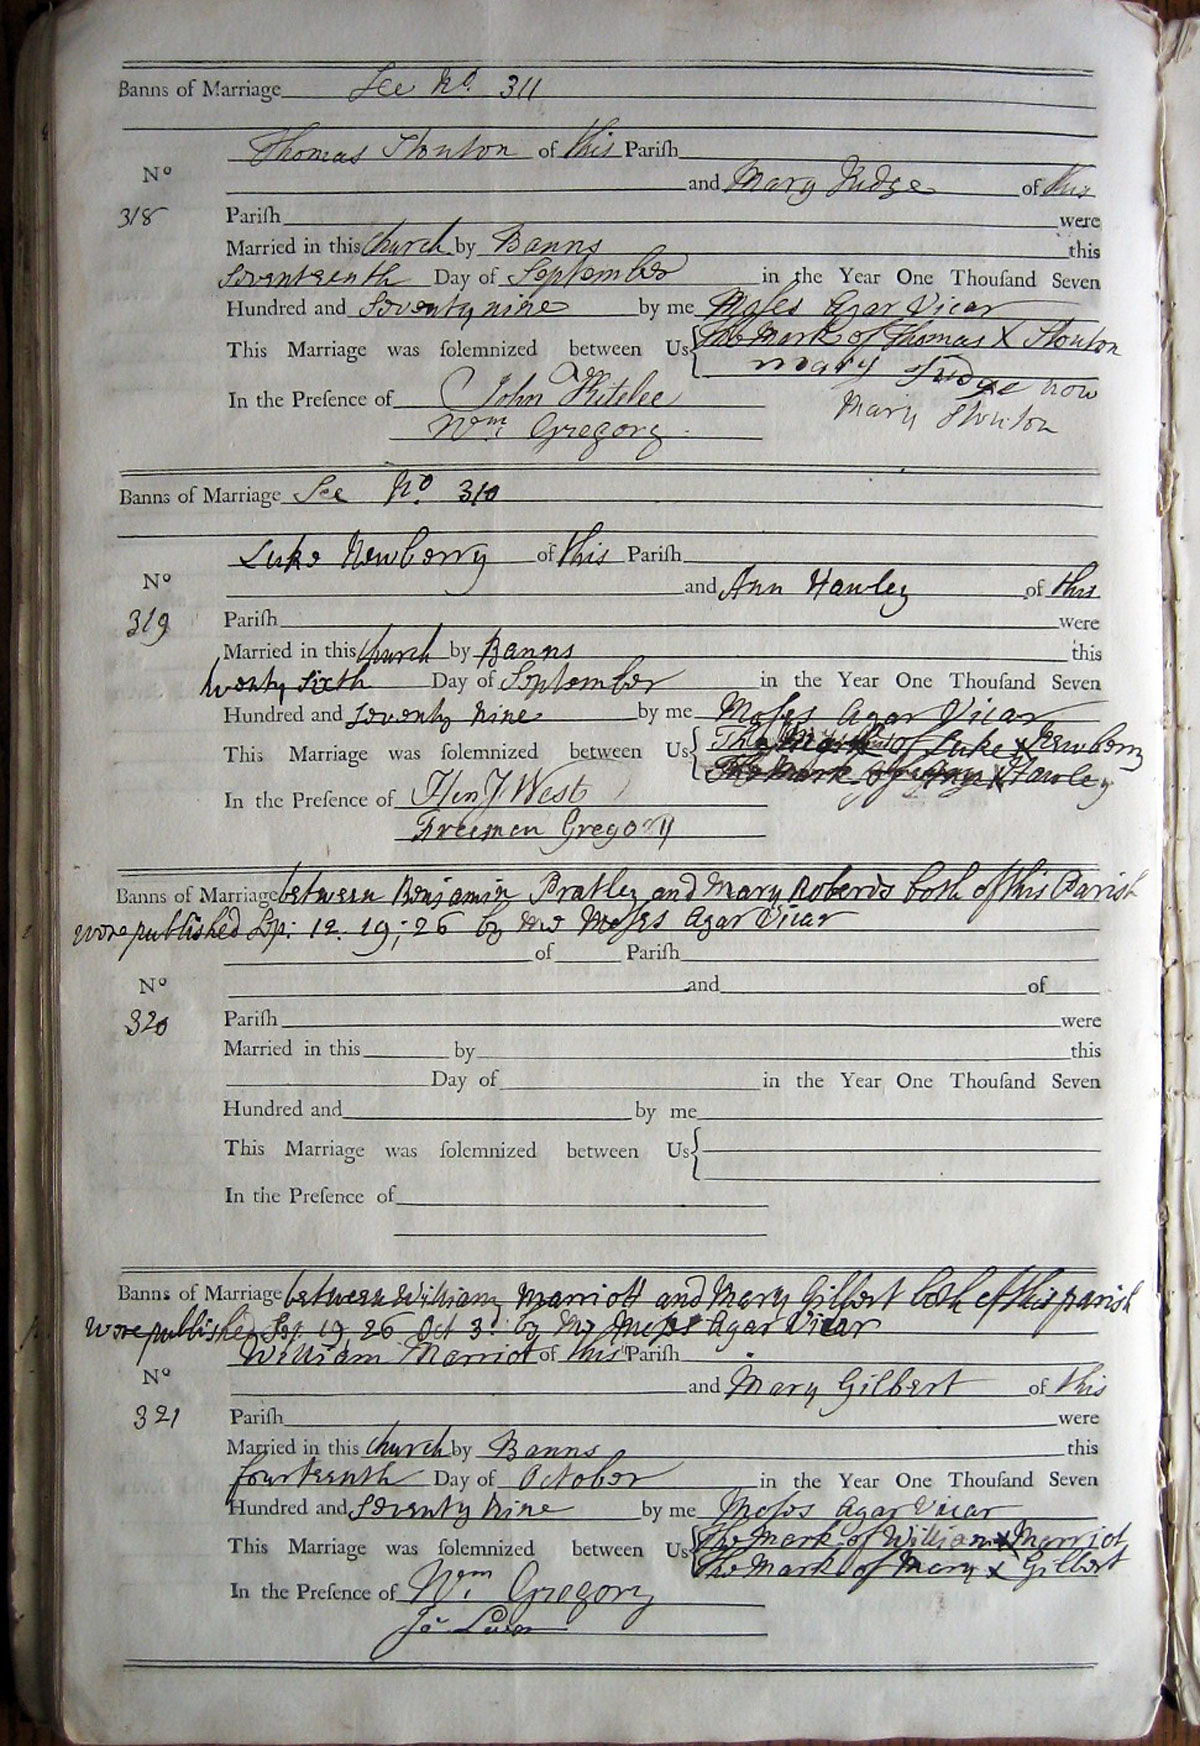 Banns of Marriage See No. 311
Thomas Honton of this Pariſh
No
and Mary Judge of this
318 Pariſh were
Married in this Church by Banns this
Seventeenth Day of September in the Year One Thouſand Seven
Hundred and Seventy nine by me Moſes Agar Vicar
This Marriage was ſolemnized between Us { The Mark of Thomas X Honton
Mary Judge now
Mary Honton
In the Preſence of John Whitelee
Wm. Gregory
Banns of Marriage See No. 310
Luke Newberry of this Pariſh
No
and Ann Hawley of this
319 Pariſh were
Married in this Church by Banns this
twenty sixth Day of September in the Year One Thouſand Seven
Hundred and Seventy Nine by me Moſes Agar Vicar
This Marriage was ſolemnized between Us { The Mark of Luke X Newberry
The Mark of X Hawley
In the Preſence of Hen J West
Freeman Gregory
Banns of Marriage between Benjamin Pratley and Mary Roberds both of this Parish
were published Sep: 12. 19; 26 by me Moſes Agar Vicar
of Pariſh
No
and of
320 Pariſh were
Married in this by this
Day of in the Year One Thouſand Seven
Hundred and by me
This Marriage was ſolemnized between Us {
In the Preſence of
Banns of Marriage between William Marriott and Mary Gilbert both of this parish
were published Sep. 19, 26 Oct 3. by me Moſes Agar Vicar
William Marriot of this Pariſh
No
and Mary Gilbert of this
321 Pariſh were
Married in this Church by Banns this
fourteenth Day of October in the Year One Thouſand Seven
Hundred and Seventy Nine by me Moſes Agar Vicar
This Marriage was ſolemnized between Us { The Mark of William X Marriot
The Mark of Mary X Gilbert
In the Preſence of Wm. Gregory